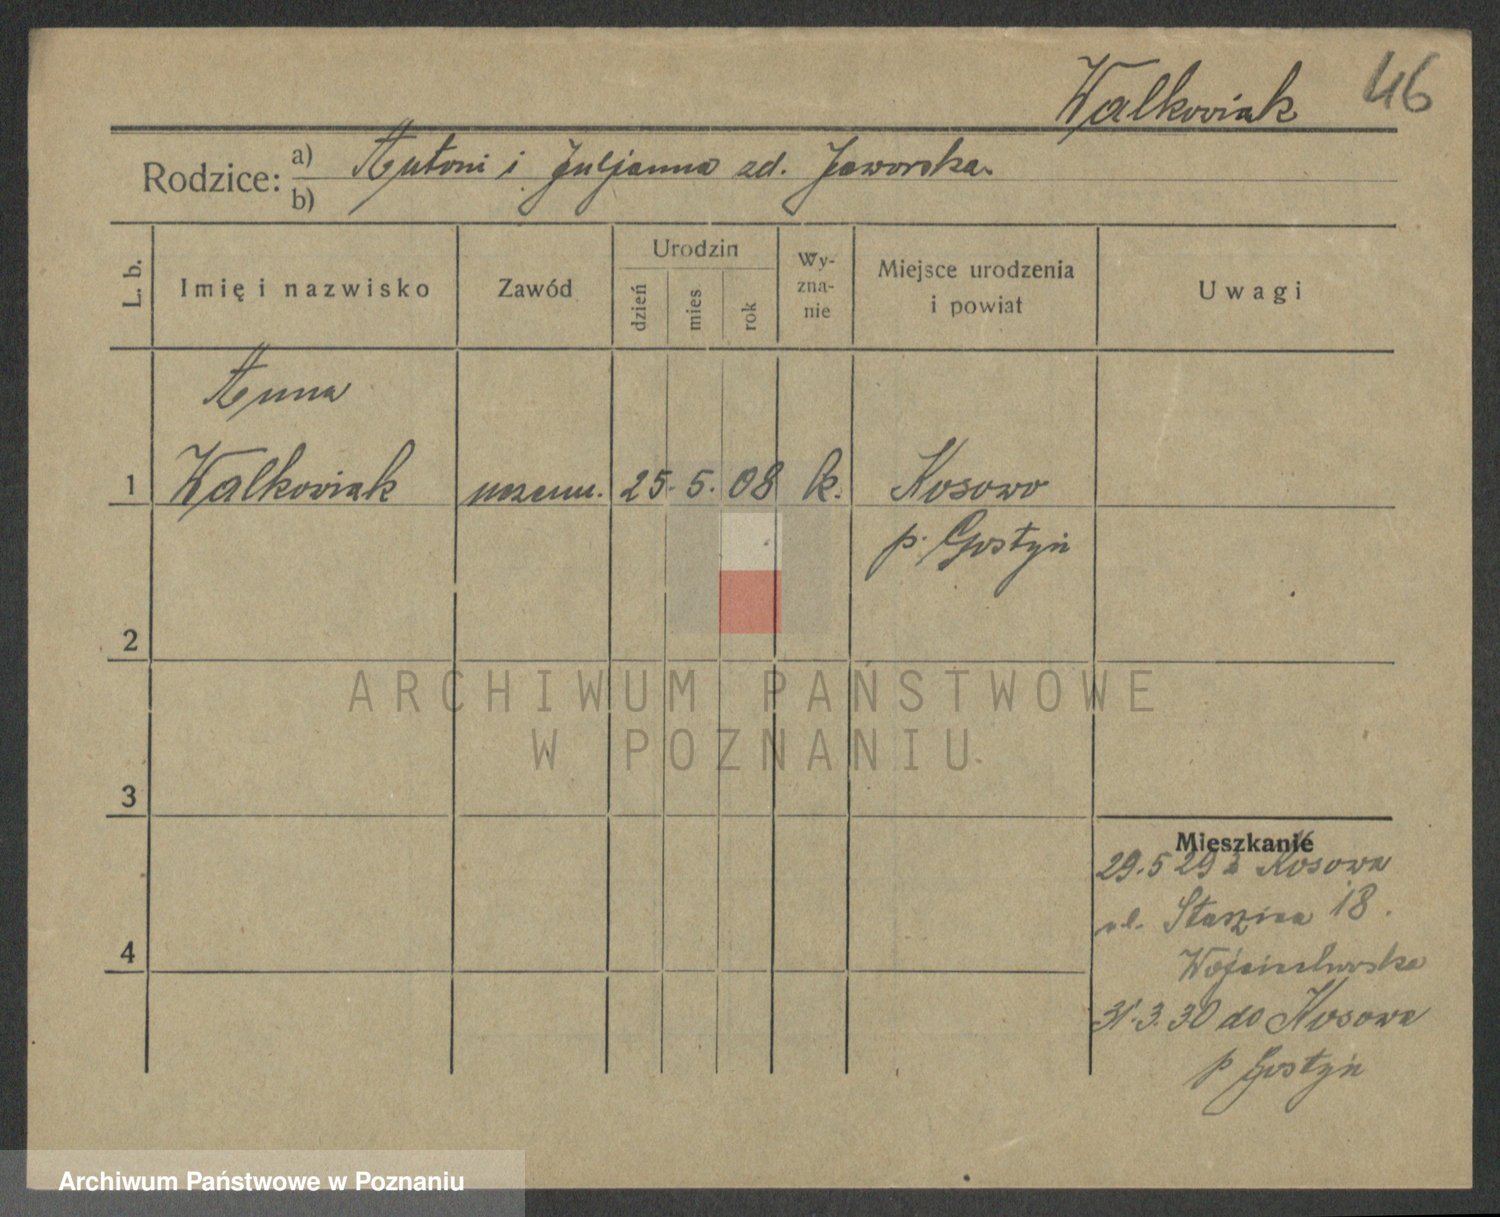 Walkowiak 46
Rodzice: a) Antoni i Juljanna zd. Jaworska.
b)
L. b.
Imię i nazwisko
Zawód
Urodzin
dzień
mies
rok
Wy-
zna-
nie
Miejsce urodzenia
i powiat
Uwagi
Anna
1 Walkowiak uczenn. 25. 5. 08 k. Kosowo
p. Gostyń
2
ARCHIWUM PAŃSTWOWE
W POZNANIU
3
Mieszkanie
29.5 29 z Kosowa
ul. Staszica 18.
4
Wojciechowska
31.3.30 do Kosowa
p Gostyń
Archiwum Państwowe w Poznaniu